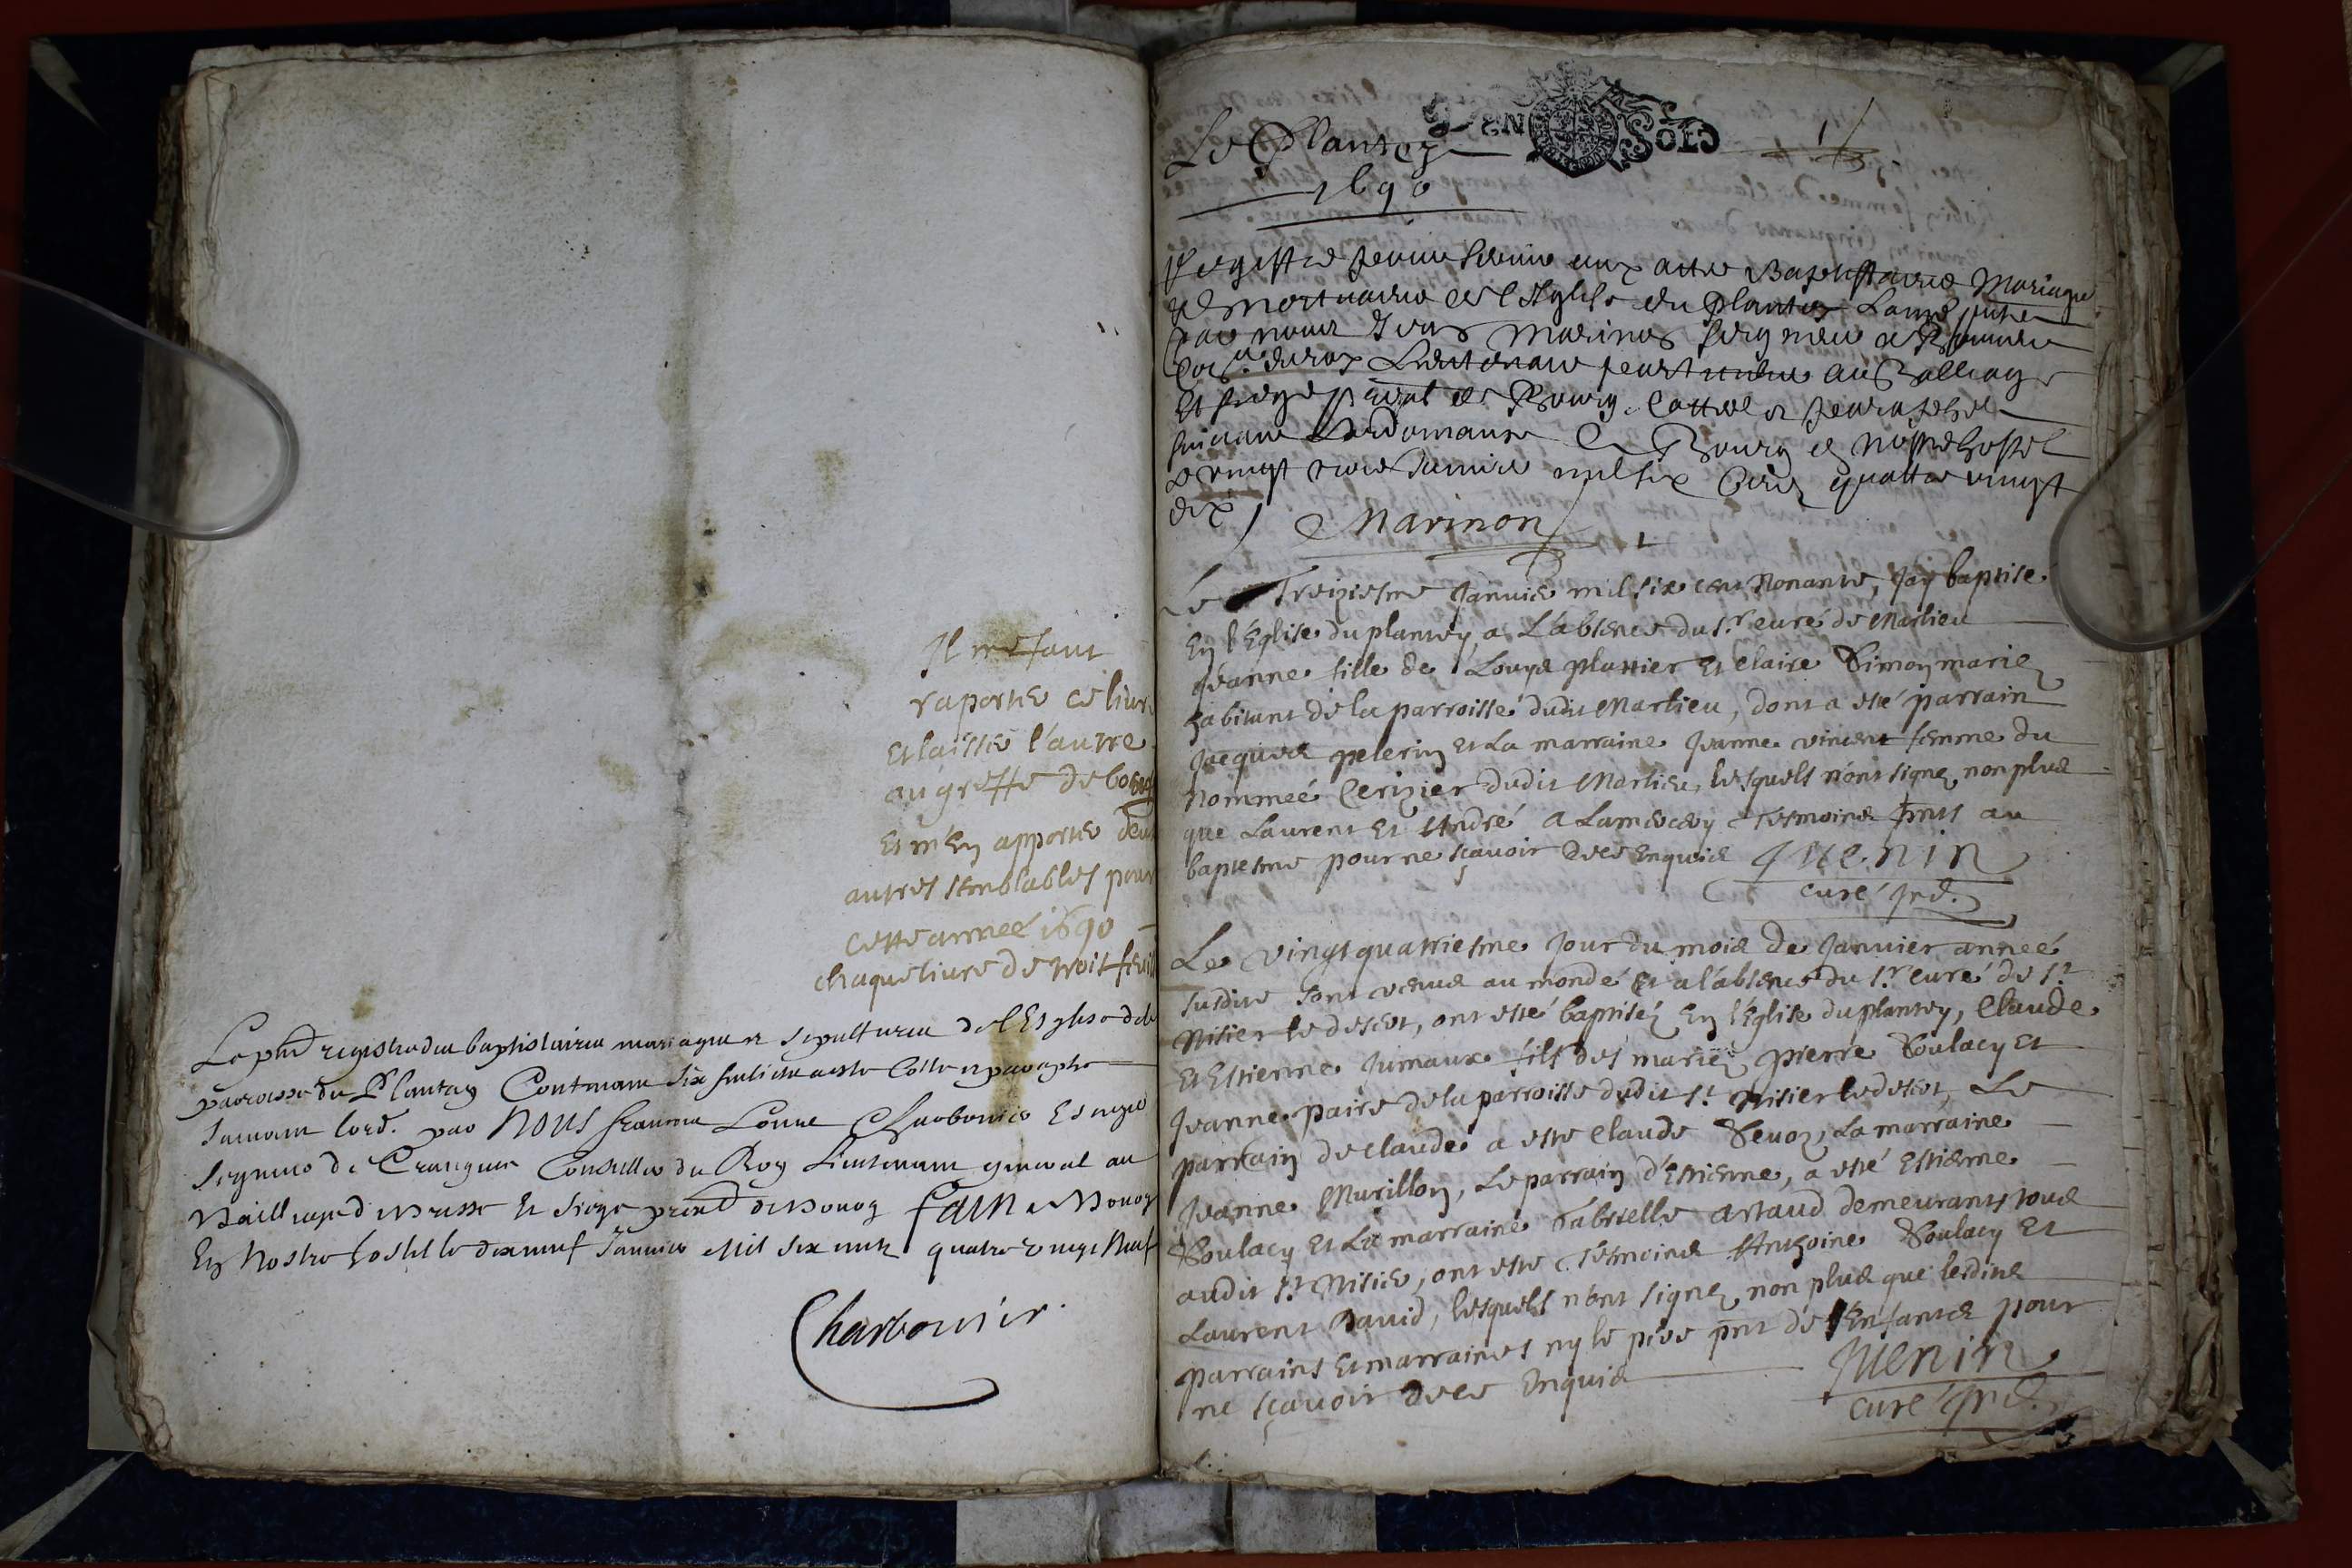 Il me faut
raporter ce livre
Et laisser l'autre
au greffe de bourg
Et m'En apporter deux
autres semblables pour
cette année 1690
chaque livre de trois feuill
Le pnt registre des baptistaires mariages et sepultures de l'Esglise de la
parroisse du Plantay Contenant six feuillets a esté Cotté et paraphé
suivant l'ord. par NOUS
Seigneur de Crangeat Conseiller du Roy Lieutenant general au
Bailliage de Bresse Et siege presid de Bourg FAIT a Bourg
En Nostre hostel le dix neuf Janvier Mil six cents quatre vingt Neuf
Charbonier
Le Plantey
DEN SOLS
1690
Registre pour servir aux actes Baptistaires Mariages
et Mortuaires de l'Esglise du Plantey
par nous Jean Marinon seigneur de
Cons.er du roy Lieutenant particulier au Balliage
Et siege presidl de Bourg. Cotté et paraphé
suivant L'ordonnance A Bourg en nostre hostel
le vingt Janvier mil six Cens quattre vingt
dix Marinon
Le Treiziesme Janvier mil six cens Nonante, Jay baptisé
En l'Eglise du plantey a L'absence du s.r curé de Marlieu
Jeanne fille de Louys plattier Et Claire Simon mariez
habitans de la parroisse dudit Marlieu, dont a esté parrain
Jacques pelerin Et La marraine Jeanne vincent femme du
Nommeé Cerizier dudit Marlieu, lesquels n'ont signez non plus
que Laurent Et André tesmoins pnts au
baptesme pour ne sçavoir de ce Enquis Juenin
curé pnd.
Le vingt quatriesme Jour du mois de Janvier anneé
susdite sont venus au monde Et a l'absence du s.r curé de s.t
Nisier le desert, ont esté baptiséz En l'Eglise du plantey, Claude
Et Estienne Jumaux fils des mariez pierre Soulacy Et
Jeanne paire de la parroisse dudit s.t Nisier le desert, Le
parrain de Claude a esté Claude Sevoz, La marraine
Jeanne Murillon, Le parrain d'Estienne, a esté Estienne
Soulacy Et La marraine Gabrielle Artaud demeurants tous
audit s.t Nisier, ont esté Tesmoins Anthoine Soulacy Et
Laurent David, lesquels n'ont signez non plus que lesdits
parrains Et marraines ny le pere pnt des Enfants pour
ne sçavoir de ce Enquis Juenin
curé pnd.